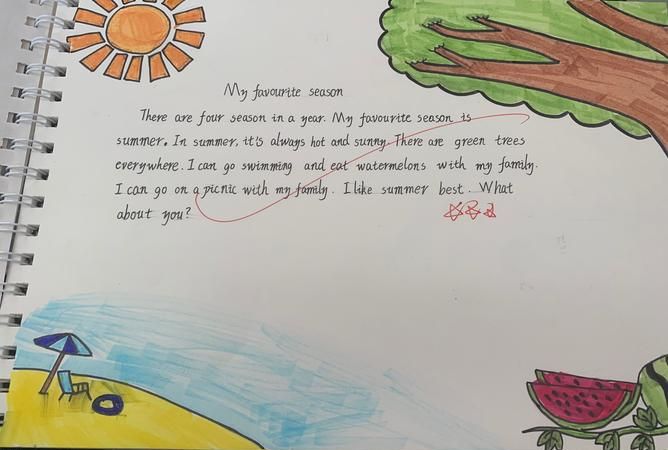 My favourite season
There are four season in a year. My favourite season is
summer. In summer, it's always hot and sunny. There are green trees
everywhere. I can go swimming and eat watermelons with my family.
I can go on a picnic with my family. I like summer best. What
about you?